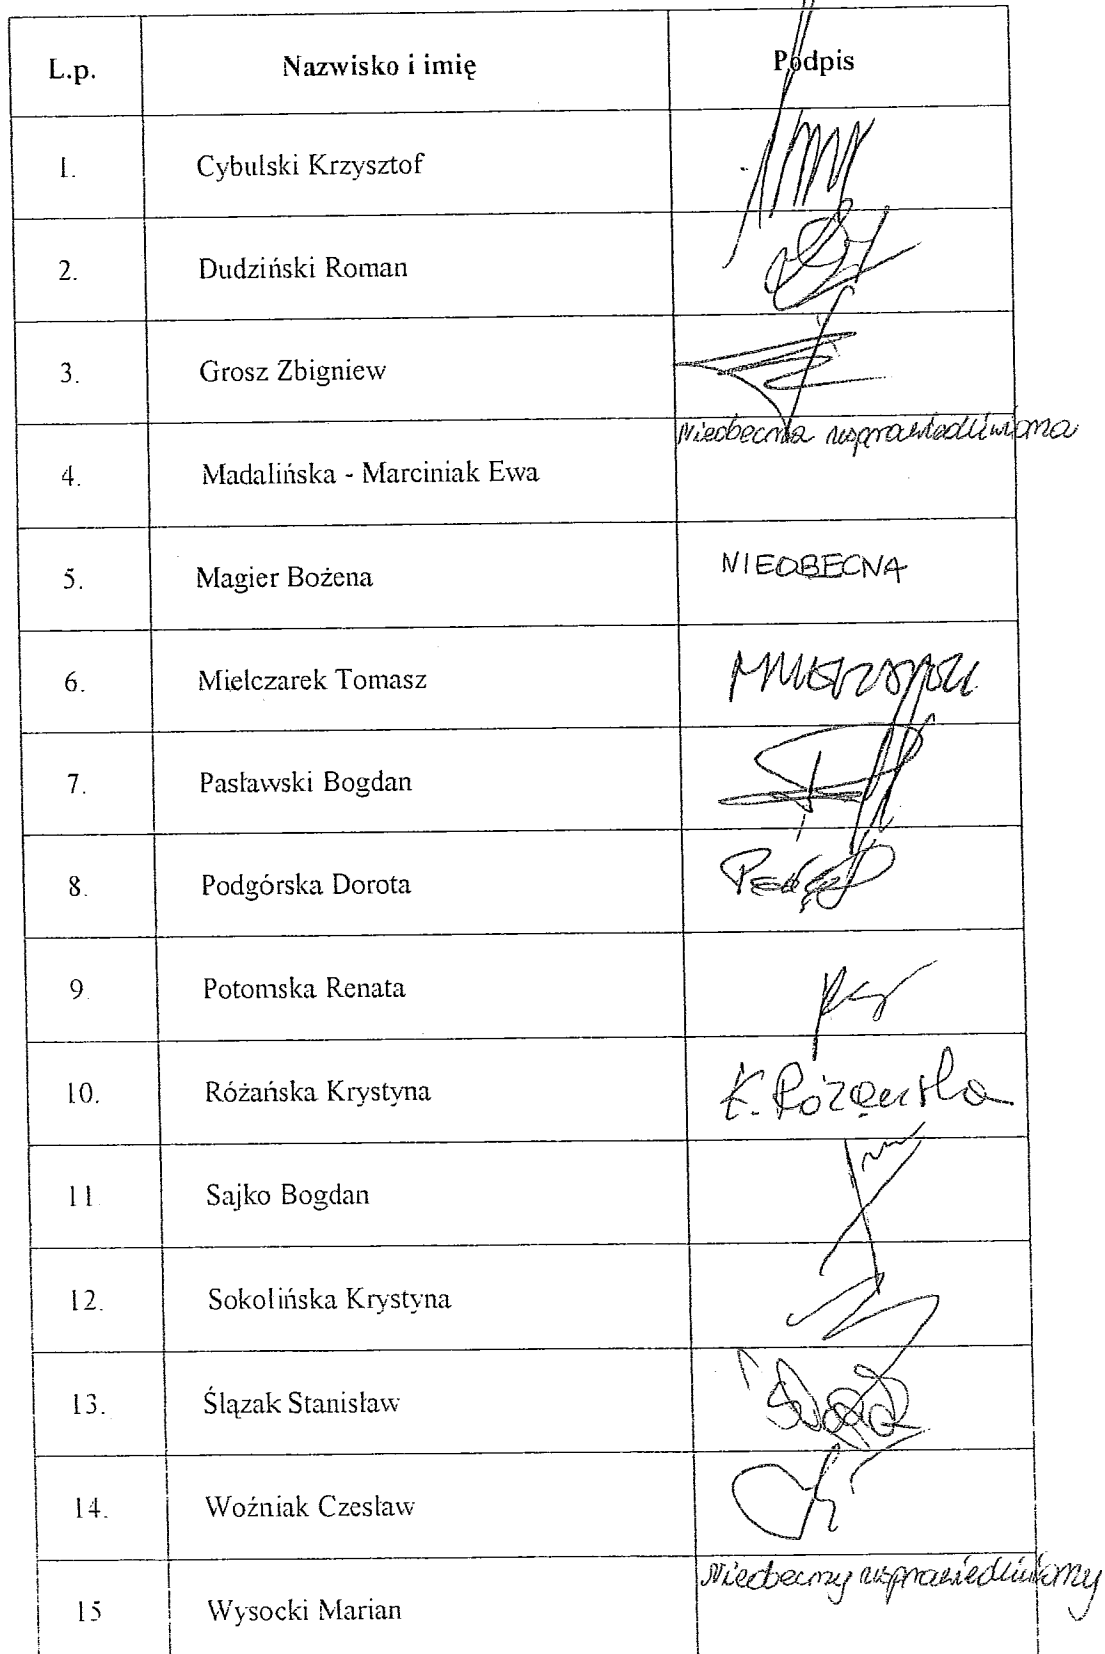 L.p. Nazwisko i imię Podpis
1. Cybulski Krzysztof
2. Dudziński Roman
3. Grosz Zbigniew
4. Madalińska - Marciniak Ewa Nieobecna usprawiedliwiona
5. Magier Bożena NIEOBECNA
6. Mielczarek Tomasz
7. Pasławski Bogdan
8. Podgórska Dorota
9. Potomska Renata
10. Różańska Krystyna K. Różańska
11 Sajko Bogdan
12. Sokolińska Krystyna
13. Ślązak Stanisław
14. Woźniak Czesław
15 Wysocki Marian Nieobecny usprawiedliwiony